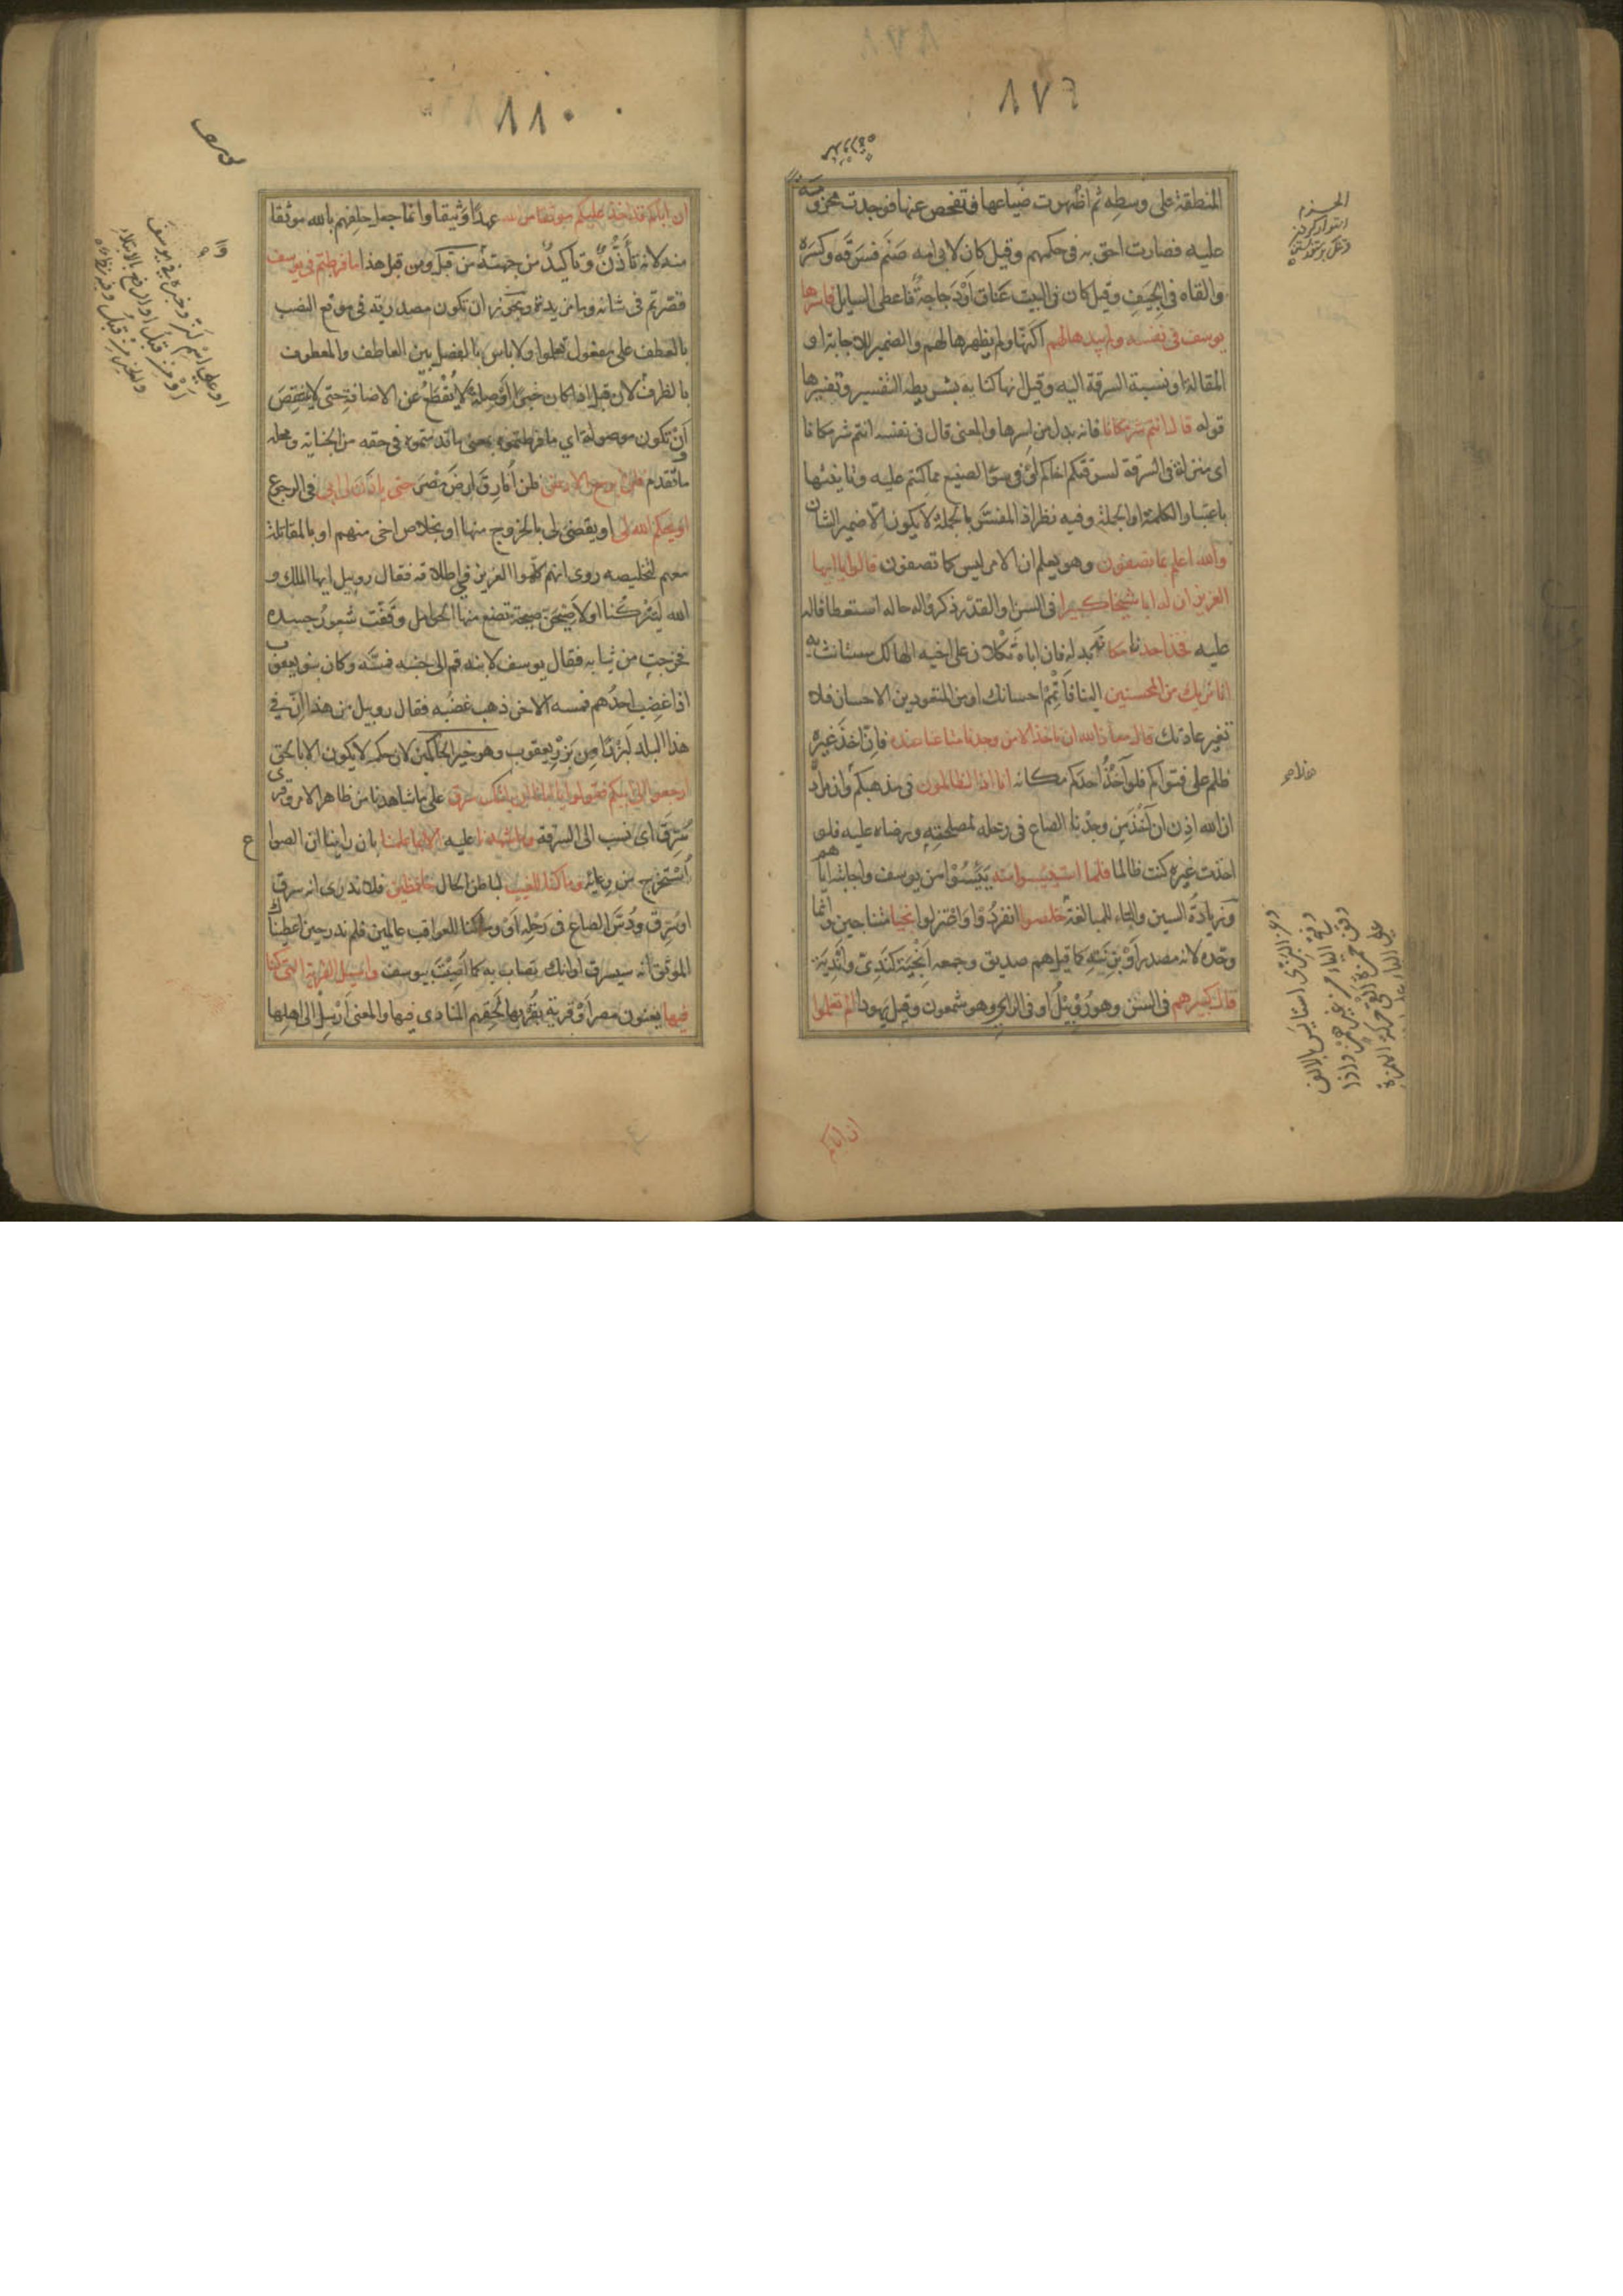 ٨٧٦
المنطقة على وسطه ثم اظهرت ضياعها فتفحص عنها فوجدت محزومة
عليه فصارت احق به في حكمهم وقيل كان لابي امه صنم فسرقه وكسره
والقاه في الجيف وقيل كان في البيت عناق او دجاجة فاعطى السايل فاسرها
يوسف في نفسه ولم يبدها لهم اكنها ولم يظهرها لهم والضمير للاجابة او
المقالة او نسبة السرقة اليه وقيل انها كناية بشريطة التفسير وتفسيرها
قوله قال انتم شر مكانا فانه بدل من اسرها والمعنى قال في نفسه انتم شر مكانا
اي منزلة في السرقة لسرقتكم اخاكم او في سوء الصنيع مما كنتم عليه وتانيثها
باعتبار الكلمة او الجملة وفيه نظر اذ المفسر بالجملة لا يكون الا ضمير الشان
والله اعلم بما تصفون وهو يعلم ان الامر ليس كما تصفون قالوا يا ايها
العزيز ان له ابا شيخا كبيرا في السن او القدر ذكروا له حاله استعطافا له
عليه فخذ احدنا مكانه بدله فان اباه ثكلان على اخيه الهالك مستانس به
انا نريك من المحسنين الينا فاتمم احسانك او من المتعودين الاحسان فلا
تغير عادتك قال معاذ الله ان ناخذ الا من وجدنا متاعنا عنده فان اخذ غيره
ظلم على فتواكم فلو آخذ احدكم مكانه انا اذا لظالمون في مذهبكم وان مراده
ان الله اذن ان آخذ من وجدنا الصاع في رحله لمصلحته ورضاه عليه فلو
اخذت غيره كنت ظالما فلما استيئسوا منه يئسوا من يوسف واجابته اياهم
وزيادة السين والتاء للمبالغة خلصوا انفردوا واعتزلوا نجيا متناجين وانما
وحده لانه مصدر او بزنته كما قيل هم صديق وجمعه انجية كندي واندية
قال كبيرهم في السن وهو روبيل او في الراي وهو شمعون وقيل يهودا الم تعلموا
ان اباكم
٨٨٠
ان اباكم قد اخذ عليكم موثقا من الله عهدا وثيقا وانما جعل حلفهم بالله موثقا
منه لانه تأذن وتاكيد من جهته من قبل ومن قبل هذا ما فرطتم في يوسف
قصرتم في شانه وما مزيدة ويجوز ان تكون مصدرية في موقع النصب
بالعطف على مفعول تعلموا ولا باس بالفصل بين العاطف والمعطوف
بالظرف لان قبل اذا كان خبرا او صلة لا يقطع عن الاضافة حتى لا ينقص
وان تكون موصولة اي ما فرطتموه بمعنى ما قدمتموه في حقه من الخيانة ومحله
ما تقدم فلن ابرح الارض فلن افارق ارض مصر حتى ياذن لي ابي في الرجوع
او يحكم الله لي او يقضي لي بالخروج منها او بخلاص اخي منهم او بالمقاتلة
معهم لتخليصه روي انهم كلموا العزيز في اطلاقه فقال روبيل ايها الملك و
الله لتتركنا او لاصيحن صيحة تضع منها الحوامل ووقفت شعور جسده
فخرجت من ثيابه فقال يوسف لابنه قم الى جنبه فمسه وكان بنو يعقوب
اذا غضب احدهم فمسه الاخر ذهب غضبه فقال روبيل من هذا ان في
هذا البلد لبزرا من بزر يعقوب وهو خير الحاكمين لان حكمه لا يكون الا بالحق
ارجعوا الى ابيكم فقولوا يا ابانا ان ابنك سرق على ما شاهدنا من ظاهر الامر وقرئ
سرق اي نسب الى السرقة وما شهدنا عليه الا بما علمنا بان راينا ان الصواع
استخرج من وعائه وما كنا للغيب لباطن الحال حافظين فلا ندري انه سرق
او سرق ودس الصاع في رحله او وما كنا للعواقب عالمين فلم ندر حين اعطيناك
الموثق انه سيسرق او انك تصاب به كما اصبت بيوسف واسئل القرية التي كنا
فيها يعنون مصر او قرية بقربها لحقهم المنادي فيها والمعنى ارسل الى اهلها